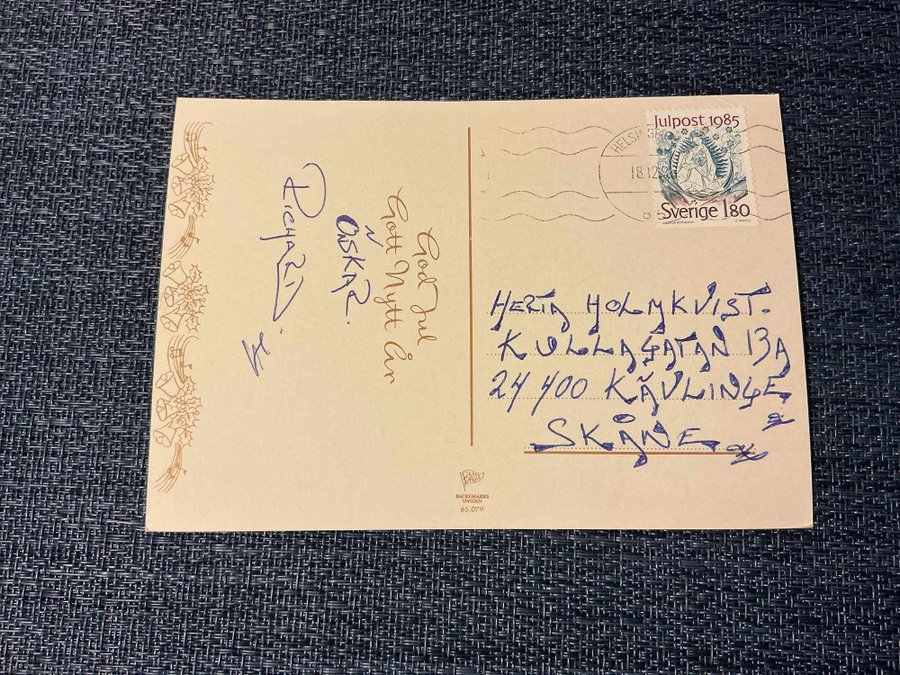 God Jul
Gott Nytt År
ÖNSKAR.
RICHARD.
HELSINGB
18.12
Julpost 1985
Sverige 180
HERTA HOLMKVIST.
KULLAGATAN 13A
24400 KÄVLINGE
SKÅNE
BACKEMARKS
SWEDEN
65.079